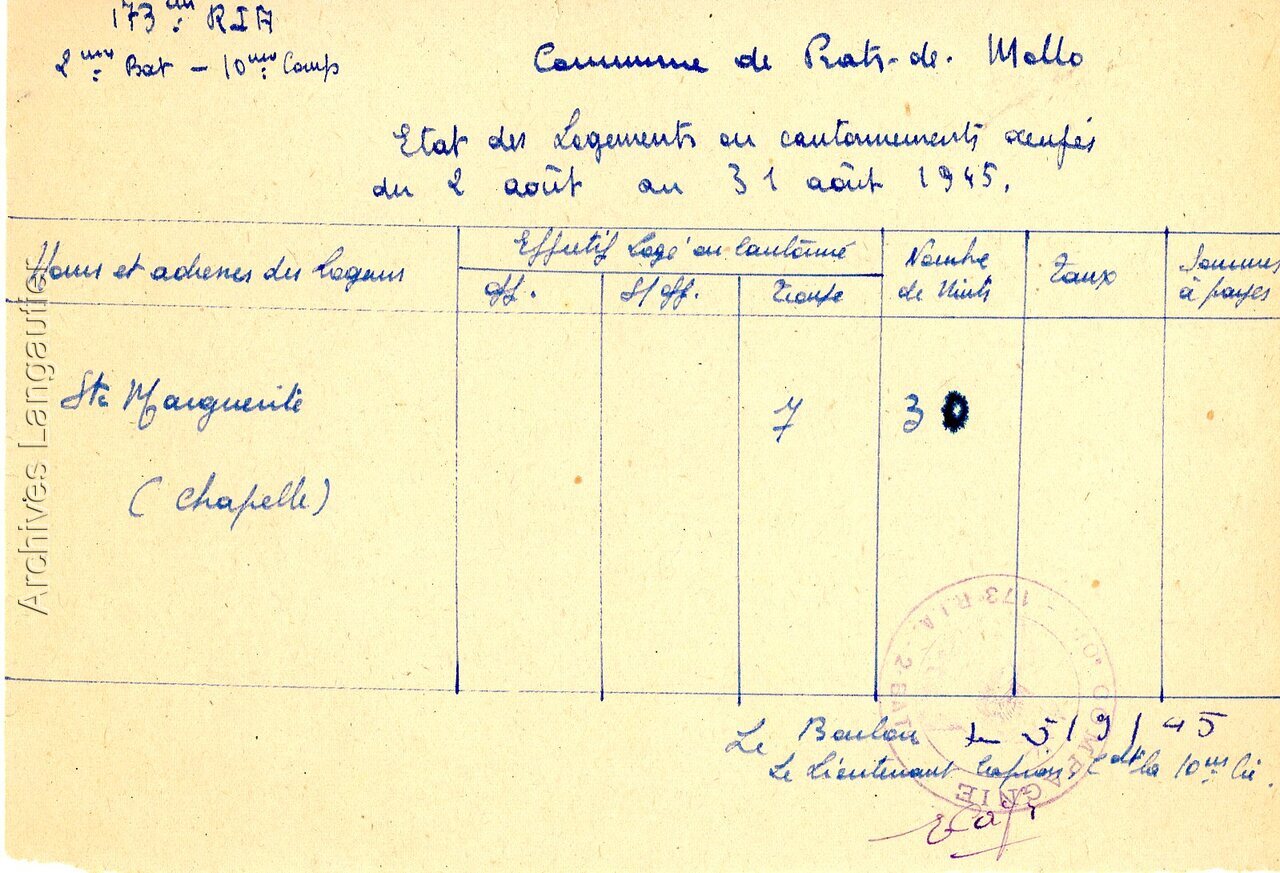 173ème RIA
2ème Bat – 10ème Comp
Commune de Prats-de-Mollo
Etat des Logements ou cantonnements occupés
du 2 août au 31 août 1945.
Noms et adresses des logeurs
Effectif Logé ou Cantonné
Off.
S/Off.
Troupe
Nombre de Nuits
Taux
Sommes à payer
Ste Marguerite
7
30
(Chapelle)
Le Boulou le 5/9/45
Le Lieutenant Cdt la 10ème Cie.
10° COMPAGNIE
173 R.I.A. 2 BAT
Archives Langautier